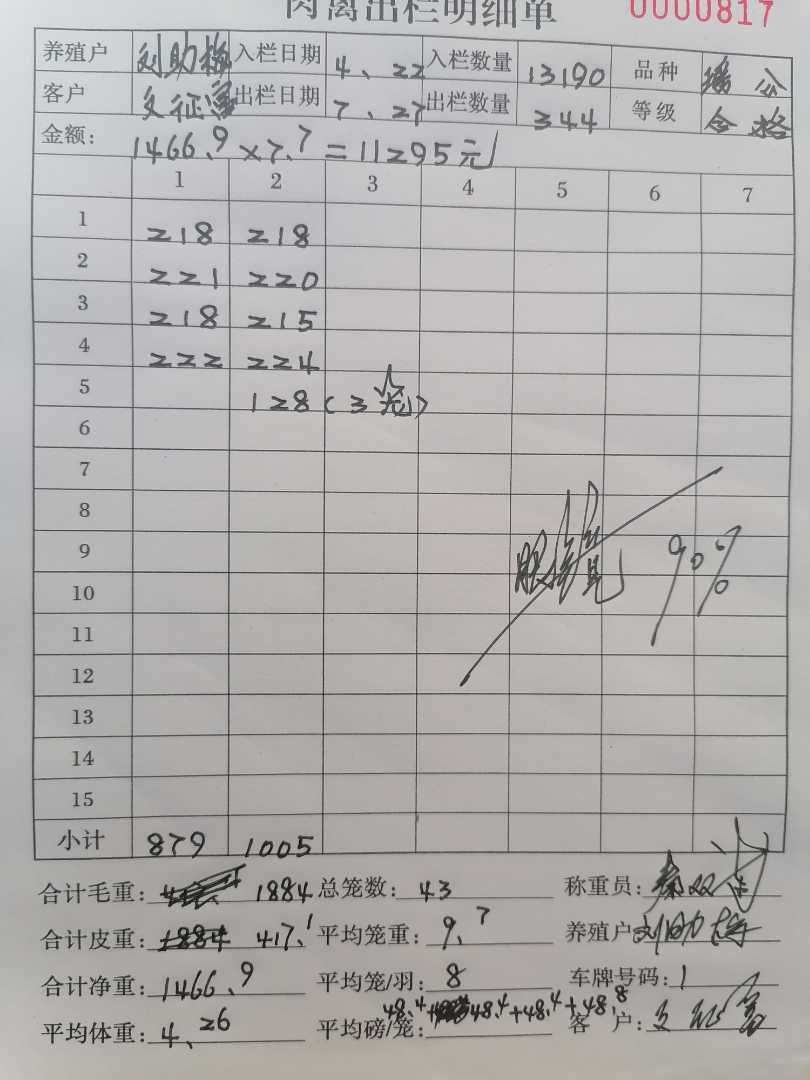 肉禽出栏明细单 0000817
养殖户 刘助梅 入栏日期 4、22 入栏数量 13190 品种 公
客户 文征富 出栏日期 7、27 出栏数量 344 等级 合格
金额: 1466.9×7.7=11295元
1 2 3 4 5 6 7
1 218 218
2 221 220
3 218 215
4 222 224
5 128(3笼)
6
7
8
9 90%
10
11
12
13
14
15
小计 879 1005
合计毛重: 1884 总笼数: 43 称重员:
合计皮重: 417.1 平均笼重: 9.7 养殖户 刘助梅
合计净重: 1466.9 平均笼/羽: 8 车牌号码: 1
平均体重: 4.26 平均磅/笼: 48.4+48.4+48.4+48.8 客户: